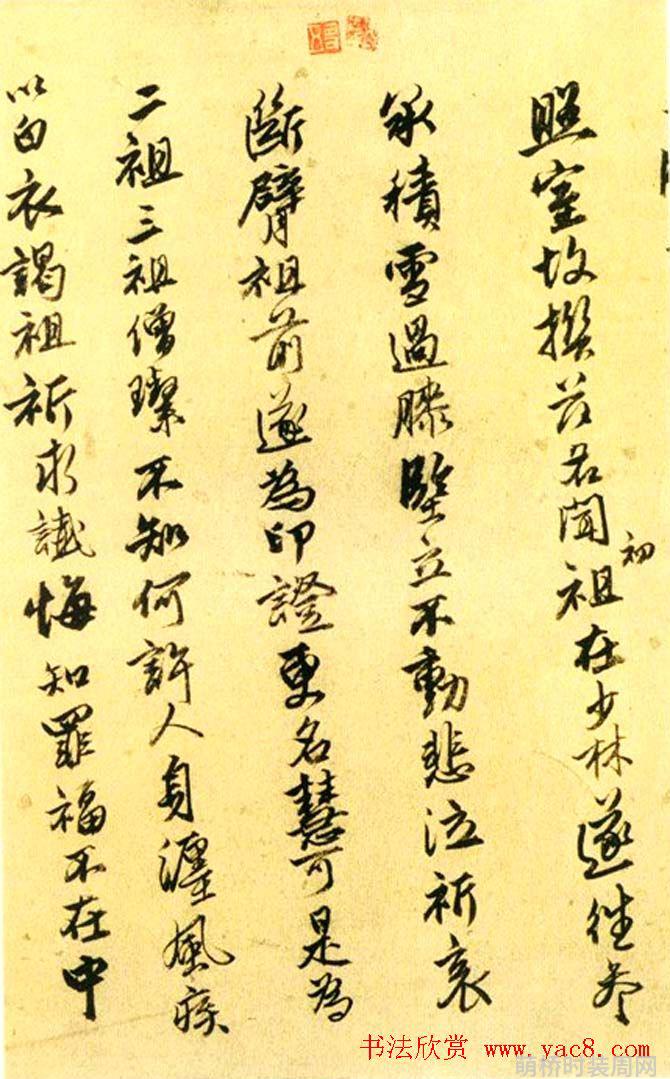 照室故撰茲名聞初祖在少林遂往參
承積雪過膝堅立不動悲泣祈哀
斷臂祖前遂為印證更名慧可是為
二祖三祖僧璨不知何許人身纏風疾
以白衣謁祖祈求懺悔知罪福不在中
书法欣赏 www.yac8.com
萌桥时装周网